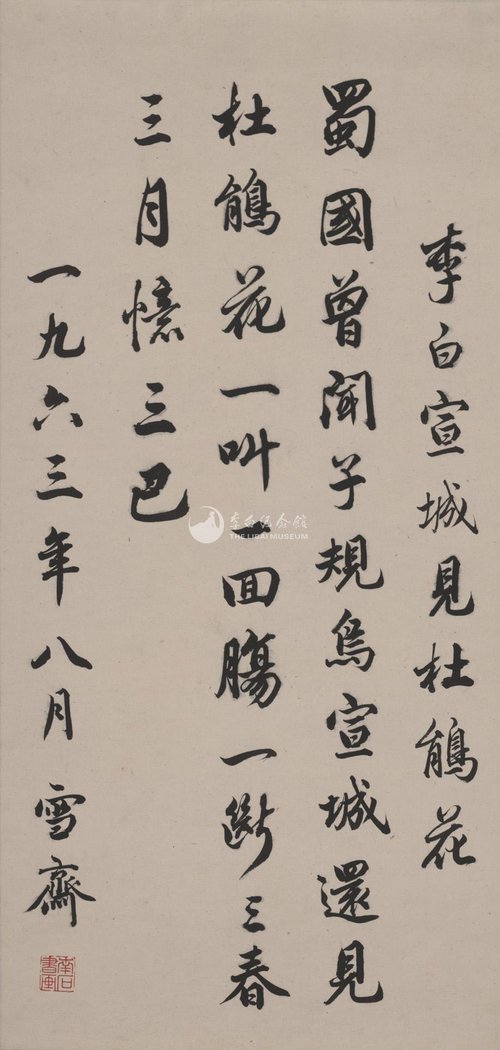 李白宣城見杜鵑花
蜀國曾聞子規鳥宣城還見
杜鵑花一叫一回腸一斷三春
三月憶三巴
一九六三年八月 雪齋
李白纪念館
THE LIBAI MUSEUM